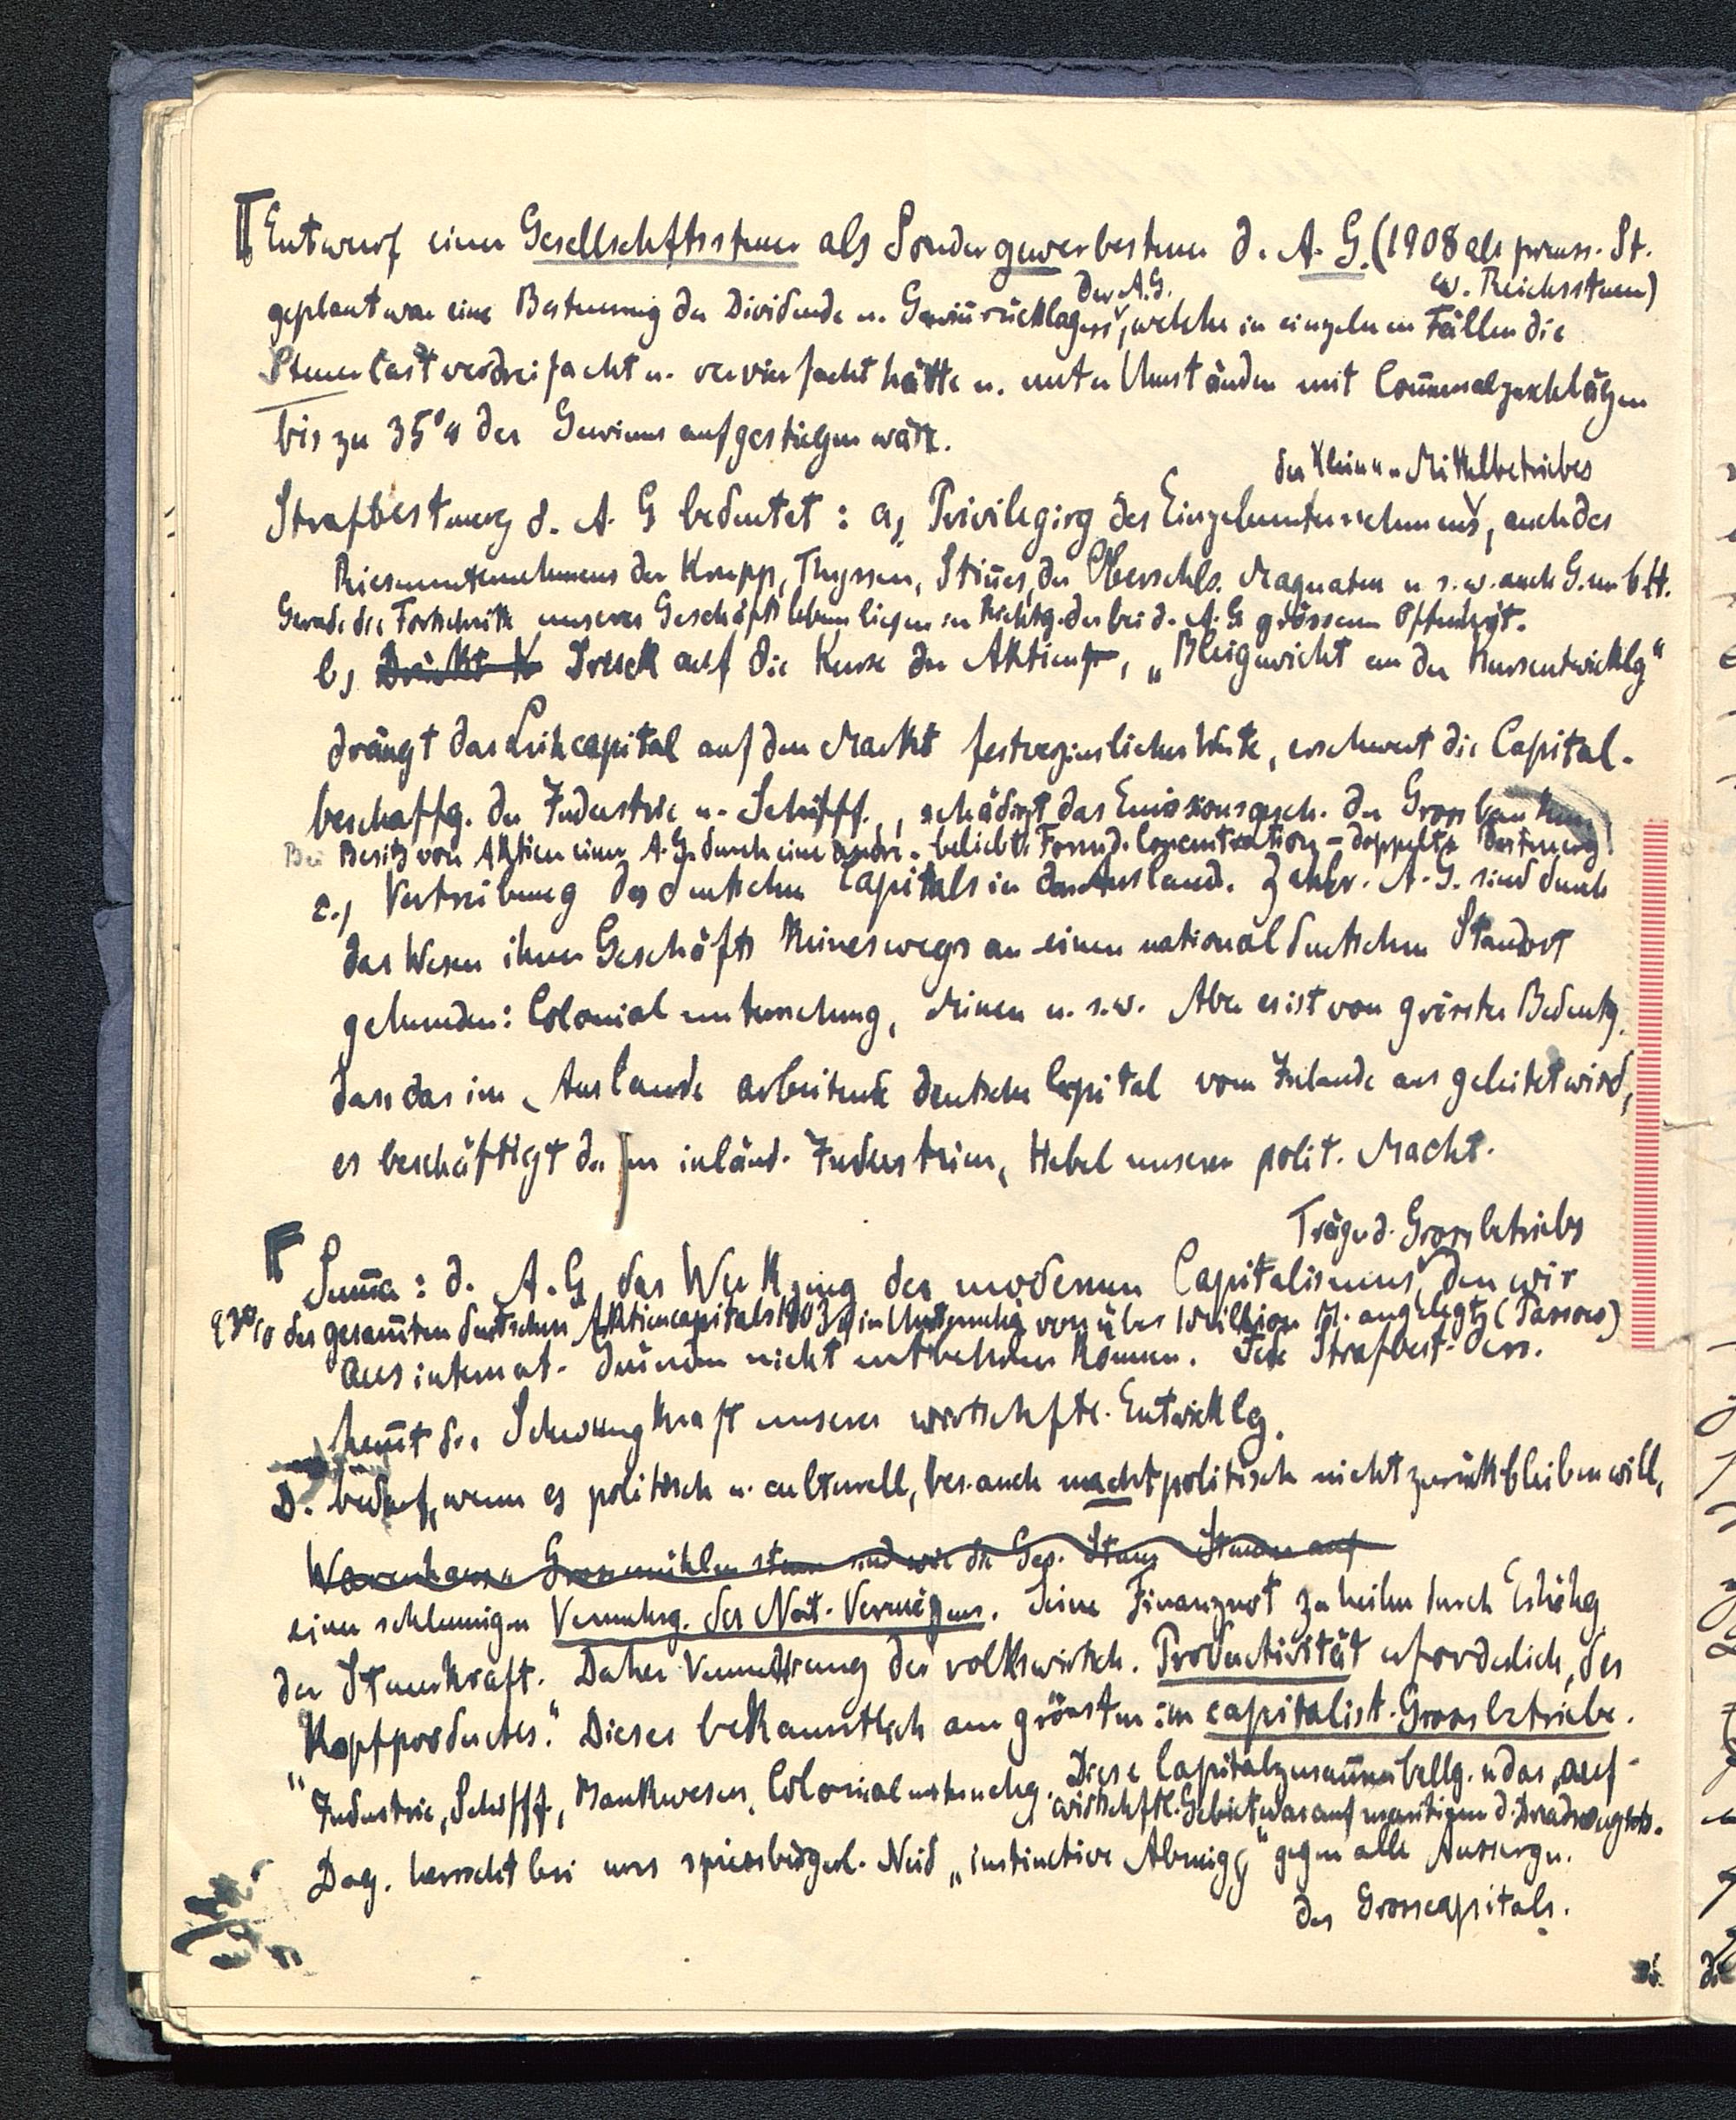 Entwurf einer Gesellschaftssteuer als Sondergewerbesteuer d. A. G. (1908 als preuss. St.
ev. Reichssteuer)
geplant war eine Besteuerung der Dividende u. Gewinrücklagen der A.G., welche in einzelnen Fällen die
Steuerlast verdreifacht u. vervierfacht hätte u. unter Umständen mit Communalzuschlägen
bis zu 35% des Gewinns aufgestiegen wäre.
des Klein u. Mittelbetriebes
Strafbesteuerg d. A. G bedeutet : a, Privilegirg des Einzelunternehmens, auch des
Riesenunternehmens der Krupp, Thyssen, Stines, der Oberschls. Magnaten u s. w. auch G. m b H.
Gerade die Fortschritte unseres Geschäftslebens liegen in Richtg. der bei d. A. G grösseren Öffentlichkt.
b, Druckt K Druck auf die Kurse der Aktien, „Bleigewicht an der Kursentwicklg"
drängt das Leihcapital auf den Markt festverzinslicher Werte, erschwert die Capital-
beschaffg. der Industrie u. Schifff., schädigt das Emissionsgesch. der Grossbanken
Bei Besitz von Aktien einer A.G. durch eine andre - beliebte Form d. Concentration - doppelte Besteuerg!
c., Vertreibung des deutschen Capitals in das Ausland. Zahlr. A. G. sind durch
das Wesen ihres Geschäfts keineswegs an einen national deutschen Standort
gebunden: Colonialunternehmung, Minen u. s. w. Aber es ist von grösster Bedeutg.
dass das im Auslande arbeitende deutsche Capital vom Inlande aus geleitet wird,
es beschäftigt dann inländ. Industrien, Hebel unserer polit. Macht.
Träger d. Grossbetriebs
Suma : d. A. G das Werkzeug des modernen Capitalismus, den wir
93% des gesamten deutschen Aktiencapitals 1903 in Unternehm. von über 1 Million M. angelegt (Passow)
aus internat. Gründen nicht entbehren könen. Jede Strafbest. ders.
hemt die Schwungkraft unserer wirtschaftl. Entwicklg.
D. bedarf, wenn es politisch u. culturell, bes. auch machtpolitisch nicht zurückbleiben will,
Warenhaus Grossmühlensteuer sind wie die Ges. Steuer Steuern auf
einer schleunigen Vermehrg. des Nat. Vermögens. Seine Finanznot zu heilen durch Erhöhg
der Steuerkraft. Daher Vermehrung der volkswirtsch. Productivität erforderlich, des
„Kopfproductes". Dieses bekanntlich am grössten im capitalist. Grossbetriebe.
Industrie, Schifff, Bankwesen, Colonialunternehmg. Diese Capitalzusammenballg. u das, auf
wirtschaftl. Gebiet, was auf maritimen d. Dreadnoughts.
Dag. herrscht bei uns spiessbürgerl. Neid „instinctive Abneigg" gegen alle Äussergn.
des Grosscapitals.